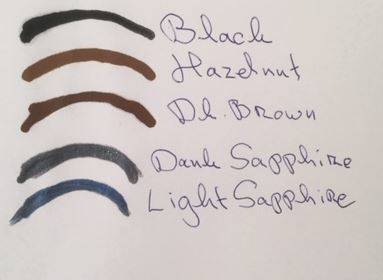 Black
Hazelnut
Dk. Brown
Dark Sapphire
Light Sapphire